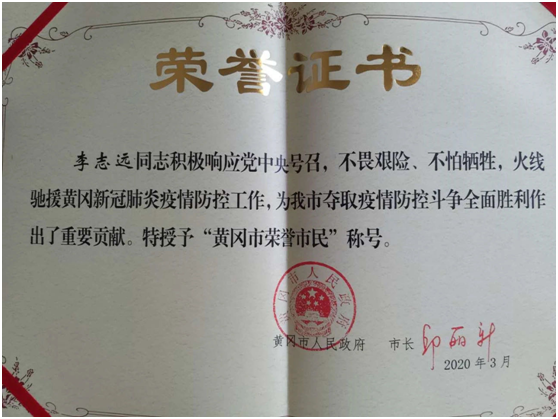 荣誉证书
李志远同志积极响应党中央号召，不畏艰险、不怕牺牲，火线
驰援黄冈新冠肺炎疫情防控工作，为我市夺取疫情防控斗争全面胜利作
出了重要贡献。特授予“黄冈市荣誉市民”称号。
黄冈市人民政府
黄冈市人民政府 市长 邱丽新
2020年3月